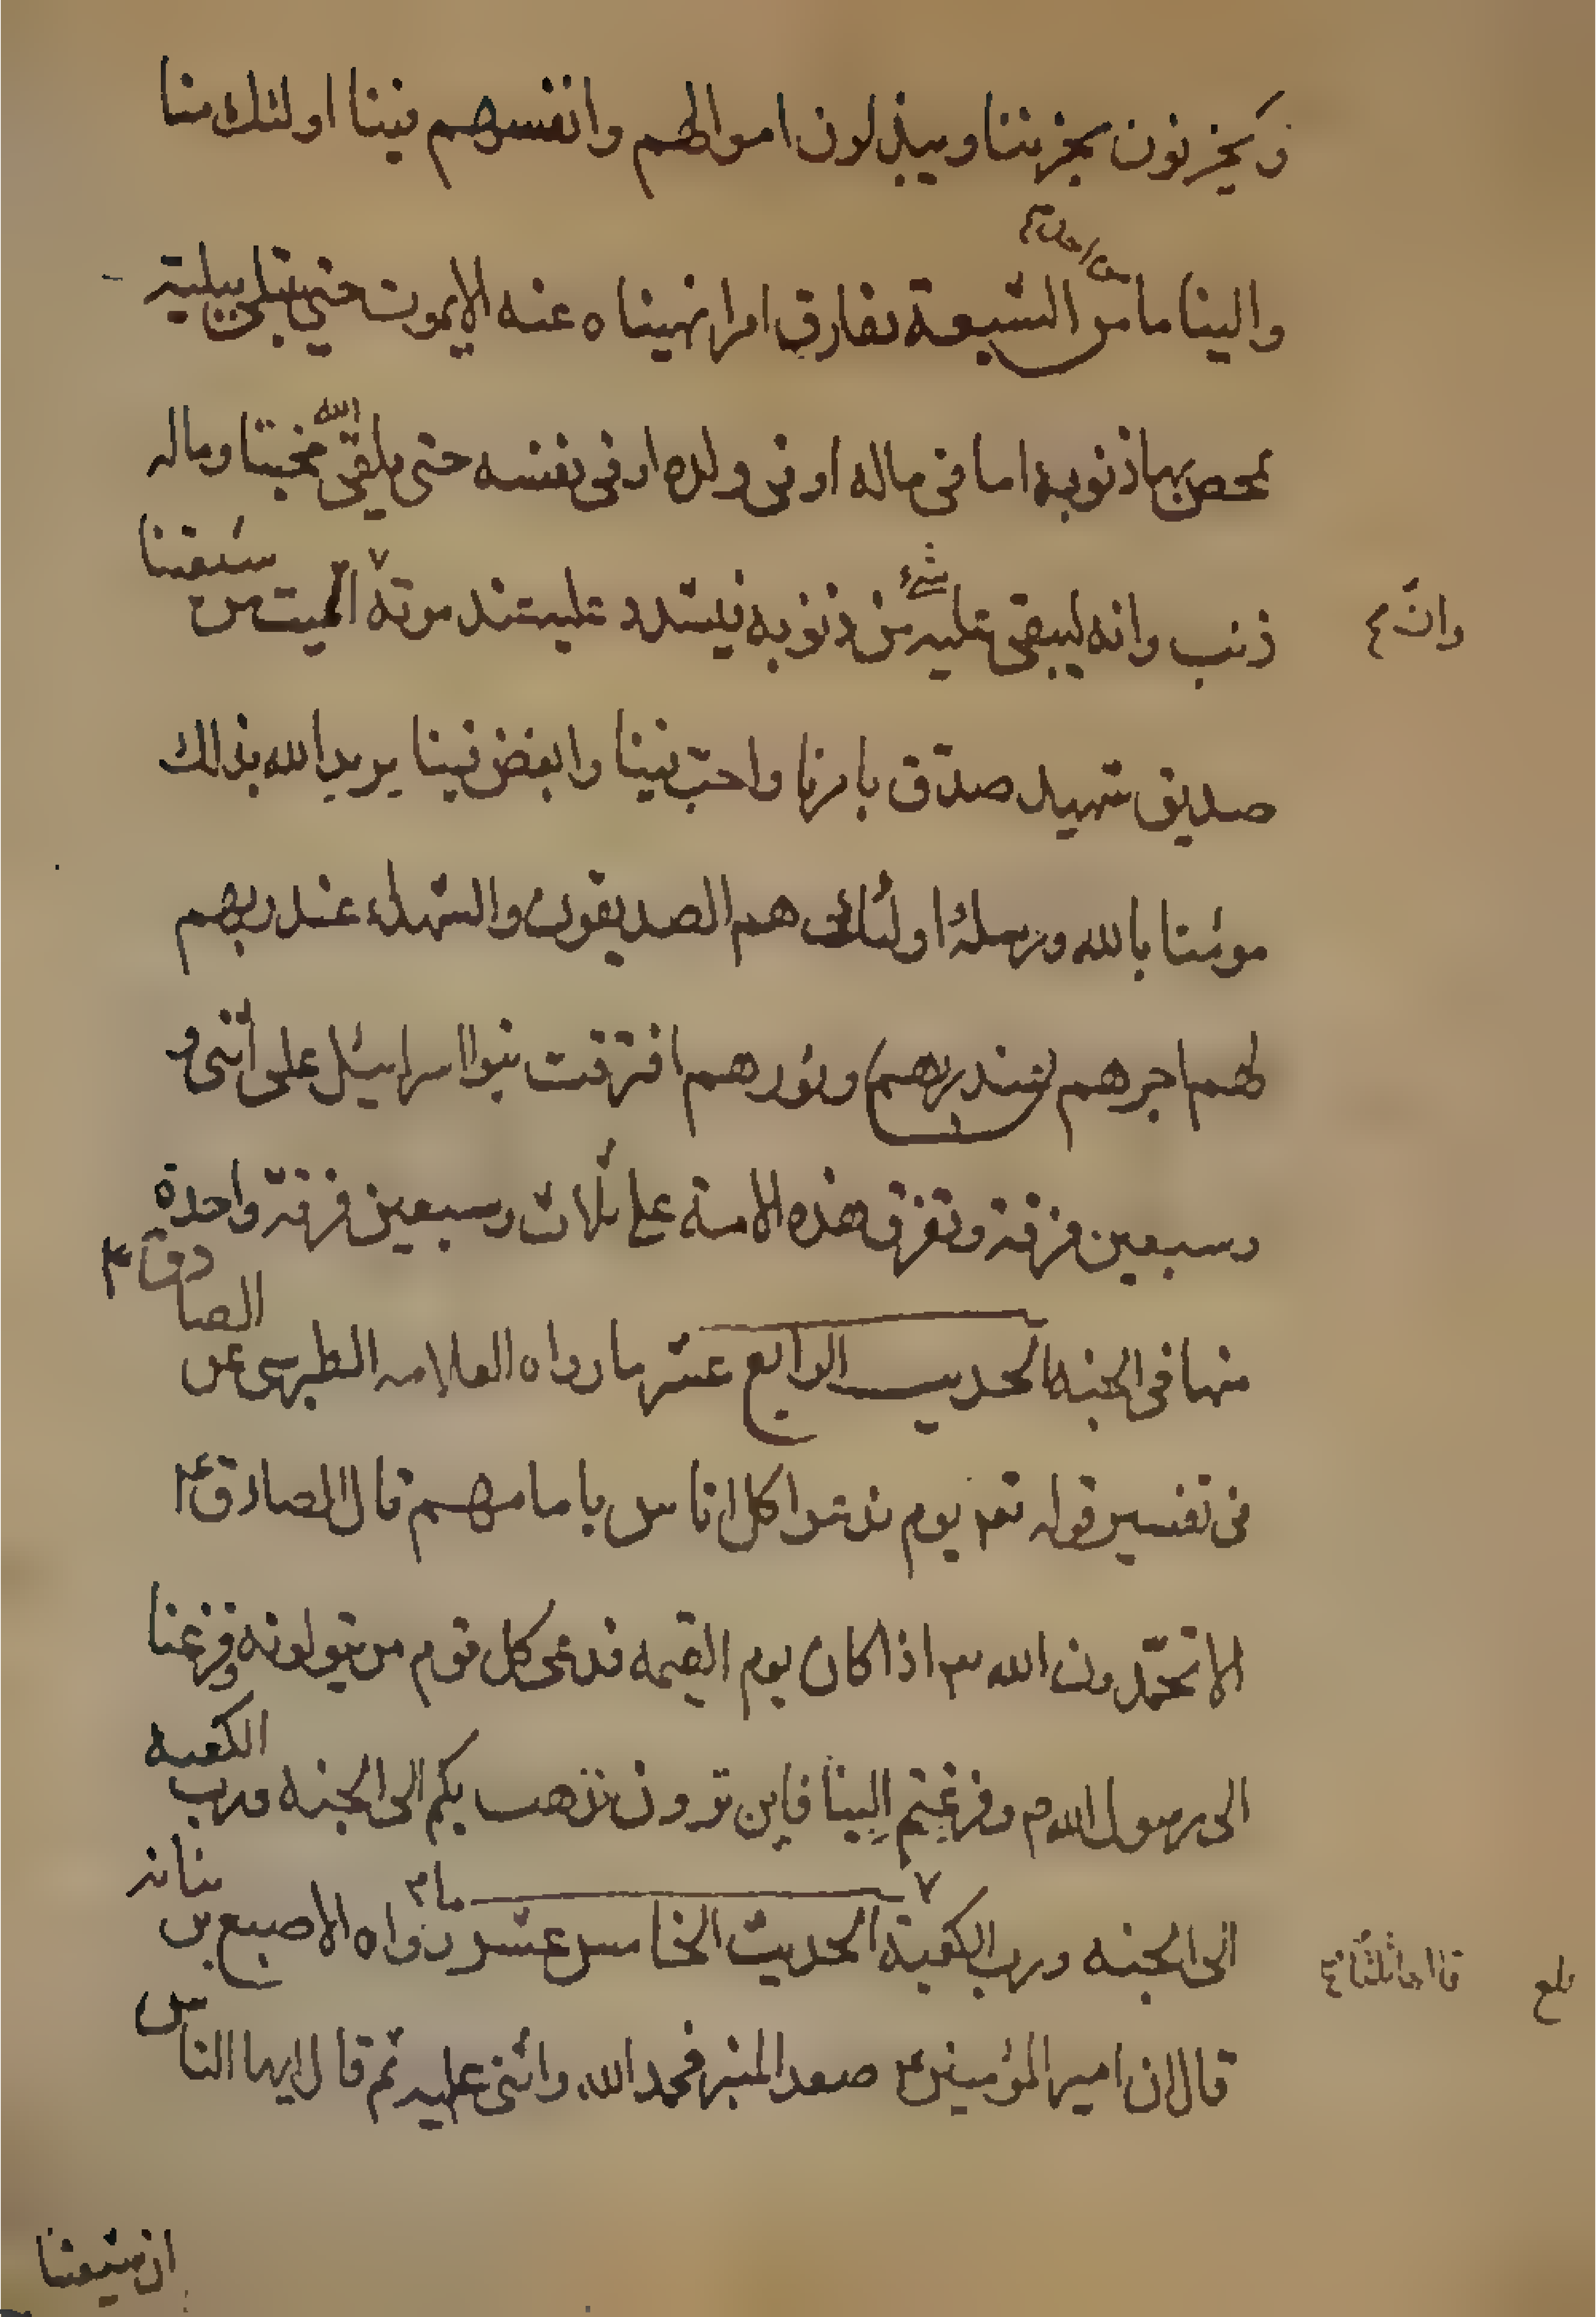 ويحزنون بحزننا ويبذلون اموالهم وانفسهم فينا اولئك منا
من احد
والينا ما من الشيعة يقارق امرا نهيناه عنه الا يموت حتى يبتلى ببلية
يمحص بها ذنوبه اما في ماله او في ولده او في نفسه حتى يلقى الله مخبتا وماله
ذنب وانه ليبقى عليه شيء من ذنوبه فيشدد عليه عند موته الميت من شيعتنا
وانّ
صديق شهيد صدّق بامرنا واحبّ فينا وابغض فينا يريد الله بذلك
مؤمنا بالله ورسله اولئك هم الصديقون والشهداء عند ربهم
لهم اجرهم عند ربهم ونورهم افترقت بنوا اسرائيل على اثنى و
وسبعين فرقة وتفرق هذه الامة على ثلاث وسبعين فرقة واحدة
منها في الجنه الحديث الرابع عشر ما رواه العلامه الطبرسى عن الصادق ع
في تفسير قوله تعه يوم ندعوا كل اناس بامامهم قال الصادق ع
الا تحمّدون الله اذا كان يوم القيمه فدعى كل قوم من يتولونه وفزعنا
الى رسول الله م وفزعتم الينا فاين ترون نذهب بكم الى الجنه ورب الكعبه
الى الجنه ورب الكعبة الحديث الخامس عشر ما رواه الاصبغ بن نباته
قالها ثلثا
بلغ
قال ان امير المؤمنين ع صعد المنبر فحمد الله واثنى عليه ثم قال ايها الناس
ان شيعتنا